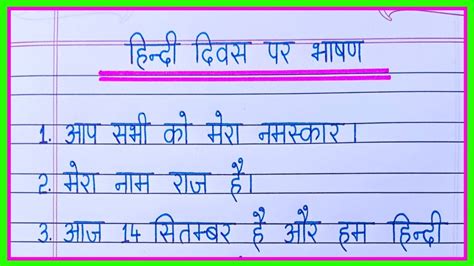 हिन्दी दिवस पर भाषण
1. आप सभी को मेरा नमस्कार।
2. मेरा नाम राज है।
3. आज 14 सितम्बर है और हम हिन्दी